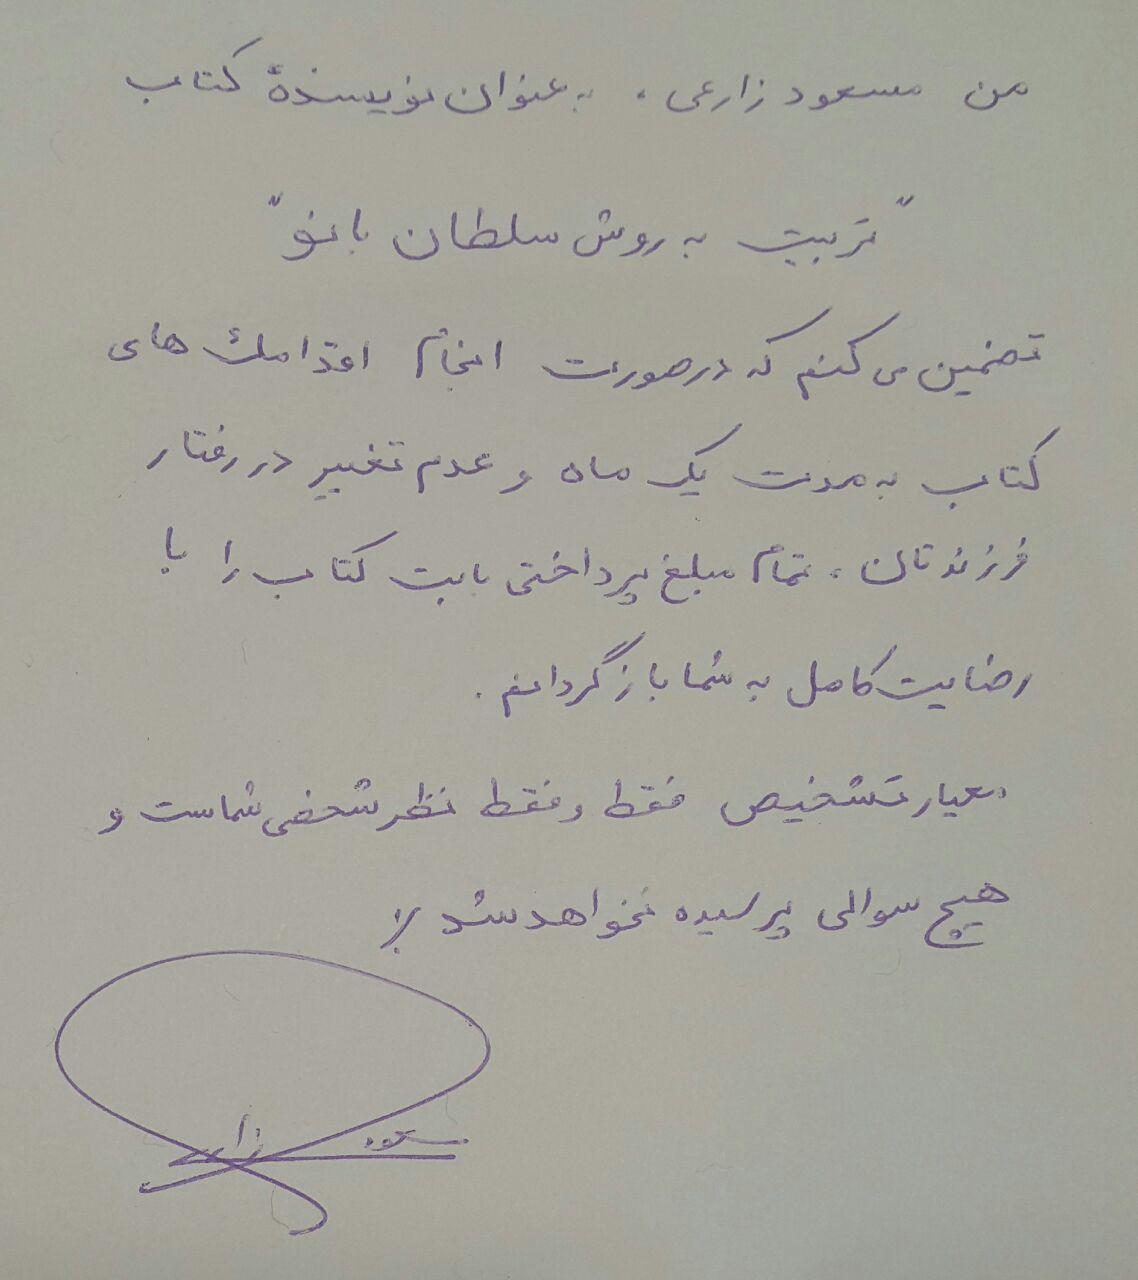 من مسعود زارعی، به عنوان نویسندهٔ کتاب
"تربیت به روش سلطان بانو"
تضمین می کنم که در صورت انجام اقدامک های
کتاب به مدت یک ماه و عدم تغییر در رفتار
فرزندتان، تمام مبلغ پرداختی بابت کتاب را با
رضایت کامل به شما بازگردانم.
معیار تشخیص فقط و فقط نظر شخصی شماست و
هیچ سوالی پرسیده نخواهد شد!
مسعود زارعی